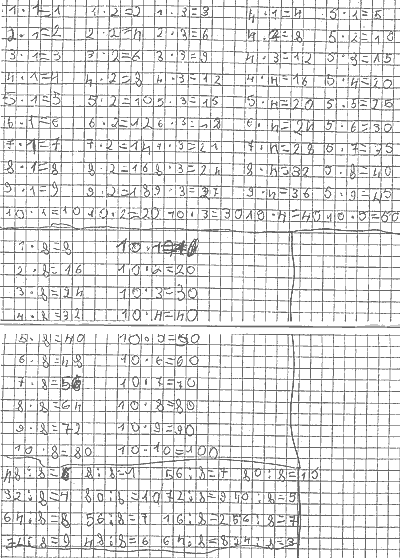 1·1=1 1·2=2 1·3=3 4·1=4 5·1=5
2·1=2 2·2=4 2·3=6 4·2=8 5·2=10
3·1=3 3·2=6 3·3=9 4·3=12 5·3=15
4·1=4 4·2=8 4·3=12 4·4=16 5·4=20
5·1=5 5·2=10 5·3=15 5·4=20 5·5=25
6·1=6 6·2=12 6·3=18 6·4=24 5·6=30
7·1=7 7·2=14 7·3=21 7·4=28 5·7=35
8·1=8 8·2=16 8·3=24 8·4=32 5·8=40
9·1=9 9·2=18 9·3=27 9·4=36 5·9=45
10·1=10 10·2=20 10·3=30 10·4=40 10·5=50
1·8=8 10·1=10
2·8=16 10·2=20
3·8=24 10·3=30
4·8=32 10·4=40
5·8=40 10·5=50
6·8=48 10·6=60
7·8=56 10·7=70
8·8=64 10·8=80
9·8=72 10·9=90
10·8=80 10·10=100
48:8=6 8:8=1 56:8=7 80:8=10
32:8=4 80:8=10 72:8=9 40:8=5
64:8=8 56:8=7 16:8=2 56:8=7
72:8=9 48:8=6 64:8=8 24:8=3